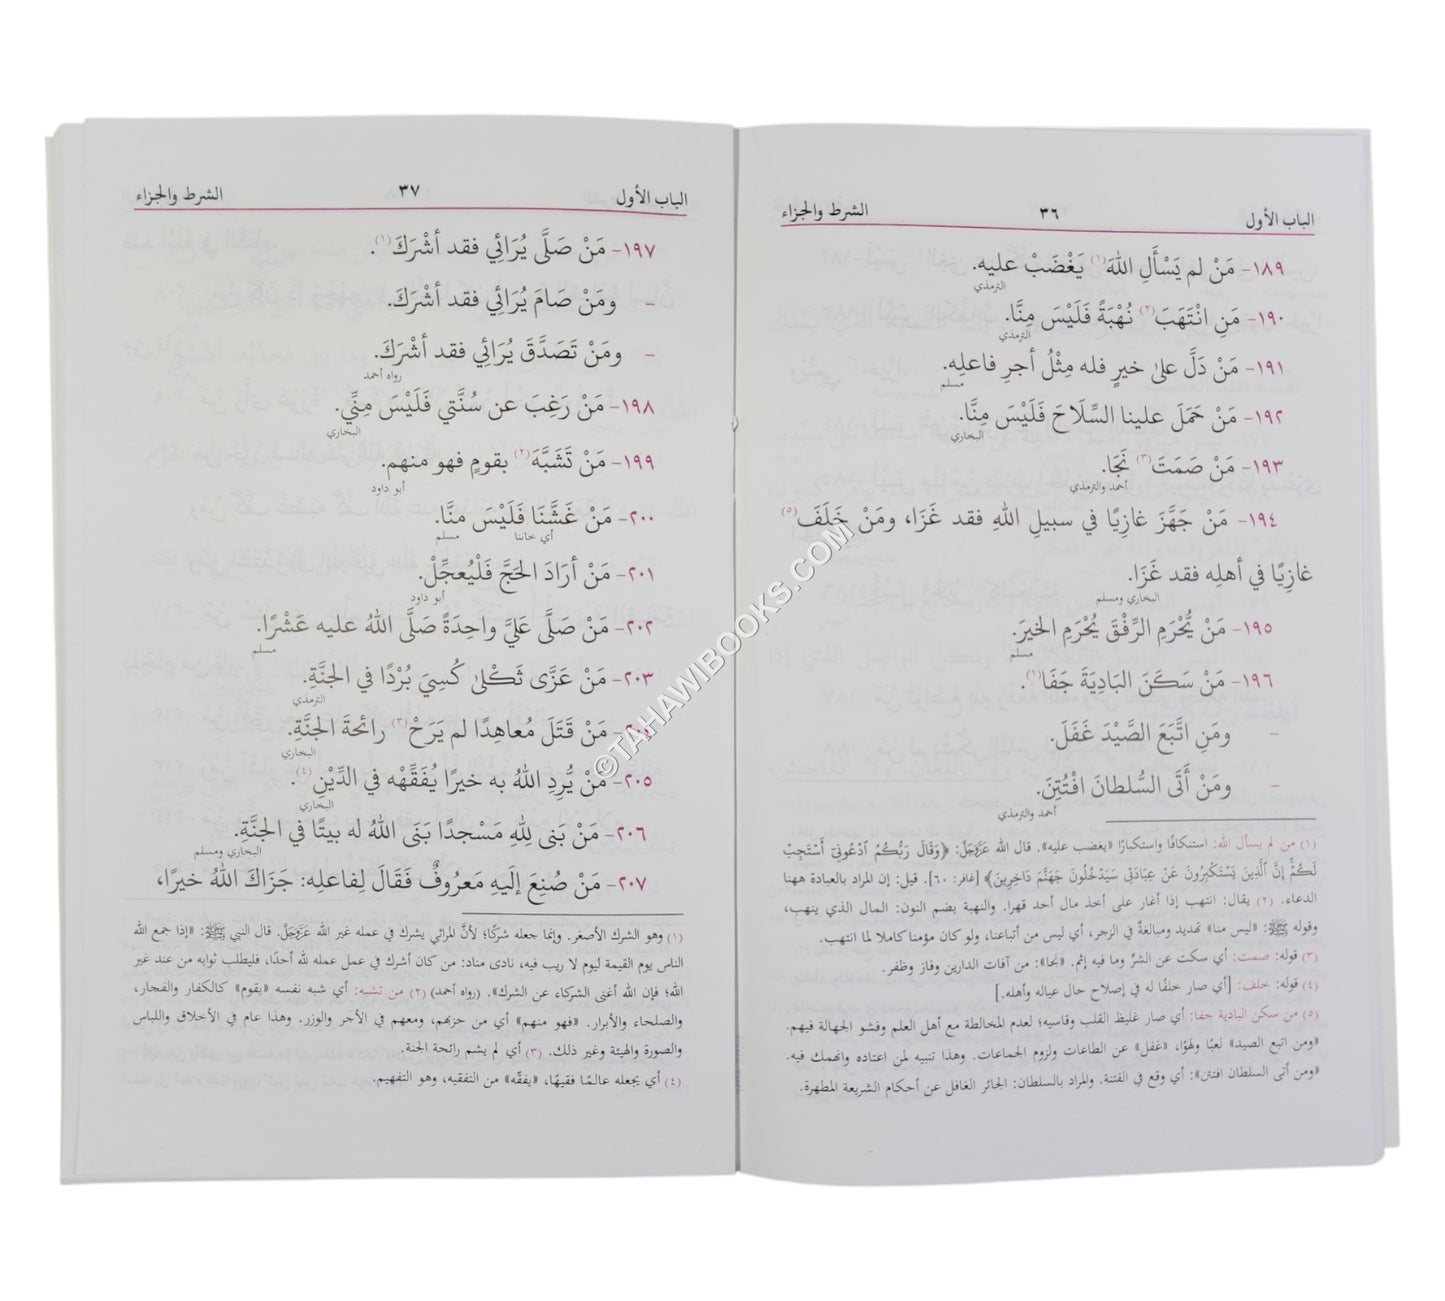 الباب الأول ٣٦ الشرط والجزاء
١٨٩- مَنْ لم يَسْأَلِ اللهَ (١) يَغْضَبْ عليه.
الترمذي
١٩٠- مَنِ انْتَهَبَ (٢) نُهْبَةً فَلَيْسَ مِنَّا.
الترمذي
١٩١- مَنْ دَلَّ علىٰ خيرٍ فله مِثْلُ أجرِ فاعلِه.
مسلم
١٩٢- مَنْ حَمَلَ علينا السِّلَاحَ فَلَيْسَ مِنَّا.
البخاري
١٩٣- مَنْ صَمَتَ (٣) نَجَا.
أحمد والترمذي
١٩٤- مَنْ جَهَّزَ غازِيًا في سبيلِ اللهِ فقد غَزَا، ومَنْ خَلَفَ (٥)
غازِيًا في أهلِه فقد غَزَا.
البخاري ومسلم
١٩٥- مَنْ يُّحْرَمِ الرِّفْقَ يُحْرَمِ الخيرَ.
مسلم
١٩٦- مَنْ سَكَنَ البَادِيَةَ جَفَا (١).
- ومَنِ اتَّبَعَ الصَّيْدَ غَفَلَ.
- ومَنْ أَتَى السُّلطانَ افْتُتِنَ.
أحمد والترمذي
(١) من لم يسأل الله: استنكافًا واستكبارًا «يغضب عليه». قال الله عَزَّوَجَلَّ: ﴿وَقَالَ رَبُّكُمُ ٱدْعُونِىٓ أَسْتَجِبْ
لَكُمْ إِنَّ ٱلَّذِينَ يَسْتَكْبِرُونَ عَنْ عِبَادَتِى سَيَدْخُلُونَ جَهَنَّمَ دَاخِرِينَ﴾ [غافر: ٦٠]. قيل: إن المراد بالعبادة ههنا
الدعاء. (٢) يقال: انتهب إذا أغار على أخذ مال أحد قهرا. والنهبة بضم النون: المال الذي ينهب،
وقوله ﷺ: «ليس منا» تهديد ومبالغةٌ في الزجر، أي ليس من أتباعنا، ولو كان مؤمنا كاملا لما انتهب.
(٣) قوله: صمت: أي سكت عن الشرِّ وما فيه إثم. «نجا»: من آفات الدارين وفاز وظفر.
(٤) قوله: خلف: [أي صار خلفًا له في إصلاح حال عياله وأهله.]
(٥) من سكن البادية جفا: أي صار غليظ القلب وقاسيه؛ لعدم المخالطة مع أهل العلم وفشو الجهالة فيهم.
«ومن اتبع الصيد» لعبًا ولهوًا، «غفل» عن الطاعات ولزوم الجماعات. وهذا تنبيه لمن اعتاده وانهمك فيه.
«ومن أتى السلطان افتتن»: أي وقع في الفتنة. والمراد بالسلطان: الجائر الغافل عن أحكام الشريعة المطهرة.
الباب الأول ٣٧ الشرط والجزاء
١٩٧- مَنْ صَلَّى يُرَائِي فقد أشْرَكَ (١).
- ومَنْ صَامَ يُرَائِي فقد أشْرَكَ.
- ومَنْ تَصَدَّقَ يُرَائِي فقد أشْرَكَ.
رواه أحمد
١٩٨- مَنْ رَغِبَ عن سُنَّتي فَلَيْسَ مِنِّي.
البخاري
١٩٩- مَنْ تَشَبَّهَ (٢) بقومٍ فهو منهم.
أبو داود
٢٠٠- مَنْ غَشَّنَا فَلَيْسَ منَّا.
أي خاننا مسلم
٢٠١- مَنْ أرَادَ الحَجَّ فَلْيُعجِّلْ.
أبو داود
٢٠٢- مَنْ صَلَّى عَلَيَّ واحِدَةً صَلَّى اللهُ عليه عَشْرًا.
مسلم
٢٠٣- مَنْ عَزَّى ثَكْلىٰ كُسِيَ بُرْدًا في الجنَّةِ.
الترمذي
٢٠٤- مَنْ قَتَلَ مُعاهِدًا لم يَرَحْ (٣) رائحةَ الجنَّةِ.
البخاري
٢٠٥- مَنْ يُّرِدِ اللهُ به خيرًا يُفَقِّهْه في الدِّيْنِ (٤).
البخاري
٢٠٦- مَنْ بَنى لِلهِ مَسْجدًا بَنَى اللهُ له بيتًا في الجنَّةِ.
البخاري ومسلم
٢٠٧- مَنْ صُنِعَ إلَيهِ مَعروفٌ فَقَالَ لِفاعلِه: جَزَاكَ اللهُ خيرًا،
(١) وهو الشرك الأصغر. وإنما جعله شركًا؛ لأنَّ المرائي يشرك في عمله غير الله عَزَّوَجَلَّ. قال النبي ﷺ: «إذا جمع الله
الناس يوم القيمة ليوم لا ريب فيه، نادى مناد: من كان أشرك في عمل عمله لله أحدًا، فليطلب ثوابه من عند غير
الله؛ فإن الله أغنى الشركاء عن الشرك». (رواه أحمد) (٢) من تشبه: أي شبه نفسه «بقوم» كالكفار والفجار،
والصلحاء والأبرار. «فهو منهم» أي من حزبهم، ومعهم في الأجر والوزر. وهذا عام في الأخلاق واللباس
والصورة والهيئة وغير ذلك. (٣) أي لم يشم رائحة الجنة.
(٤) أي يجعله عالـمًا فقيهًا، «يفقّه» من التفقيه، وهو التفهيم.
©TAHAWIBOOKS.COM